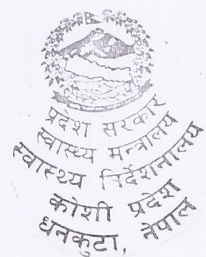 प्रदेश सरकार
स्वास्थ्य मन्त्रालय
स्वास्थ्य निर्देशनालय
कोशी प्रदेश
धनकुटा, नेपाल